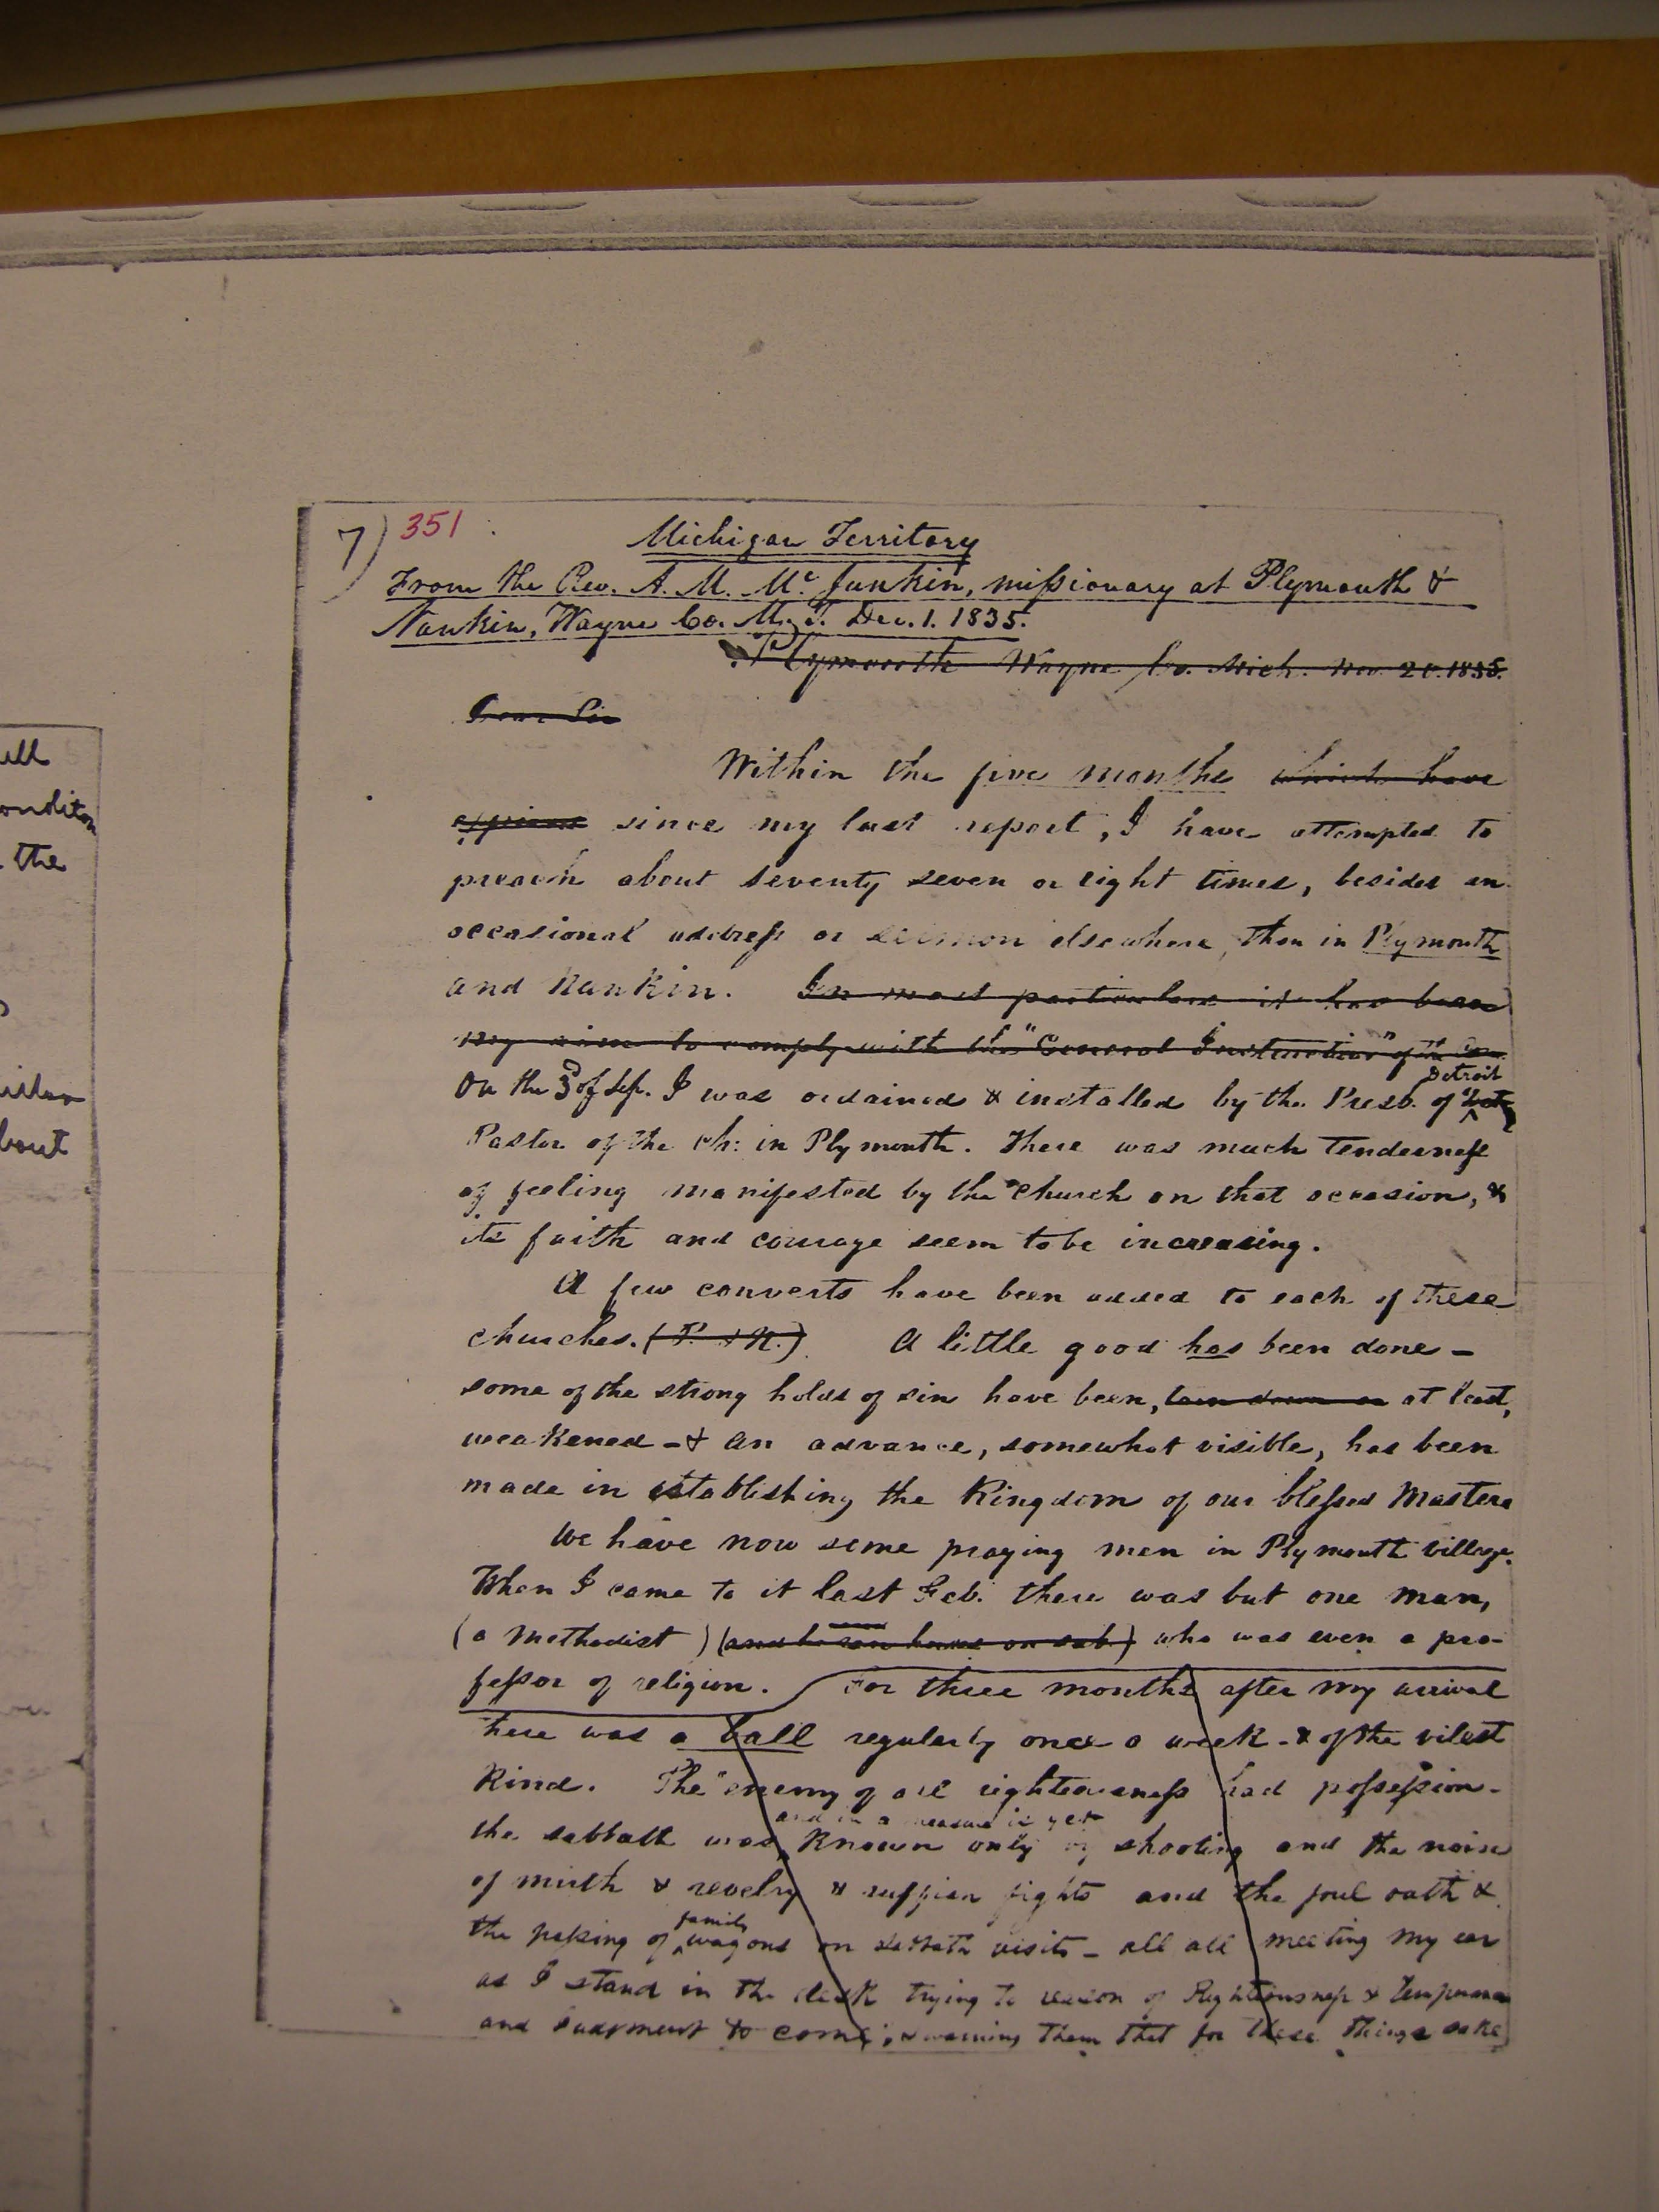 7) 351
Michigan Territory
From the Rev. A. M. Mc Junkin, missionary at Plymouth &
Nankin, Wayne Co. M. T. Dec. 1. 1835.
Plymouth Wayne Co. Mich. Nov. 20. 1835.
Dear Sir
Within the five months which have
expired since my last report, I have attempted to
preach about seventy seven or eight times, besides an
occasional address or sermon elsewhere, than in Plymouth
and Nankin. In most particulars it has been
my aim to comply with the "General Instructions" of the
Detroit
On the 3d of Sep. I was ordained & installed by the Presb. of
Pastor of the ch: in Plymouth. There was much tenderness
of feeling manifested by the church on that occasion, &
its faith and courage seem to be increasing.
A few converts have been added to each of these
churches. (P. & N.) A little good has been done -
some of the strong holds of sin have been, torn down or at least,
weakened - & an advance, somewhat visible, has been
made in establishing the Kingdom of our blessed Master
We have now some praying men in Plymouth village.
When I came to it last Feb. there was but one man,
(a Methodist) who was even a pro-
fessor of religion. For three months after my arrival
here was a ball regularly once a week - & of the vilest
kind. The enemy of all righteousness had possession -
and in a measure is yet
the sabbath was known only by shooting and the noise
of mirth & revelry & ruffian fights and the foul oath &
family
the passing of wagons on sabbath visits - all all meeting my ear
as I stand in the desk trying to reason of Righteousness & temperance
and judgment to come; & warning them that for these things sake
ell
condition
the
bout